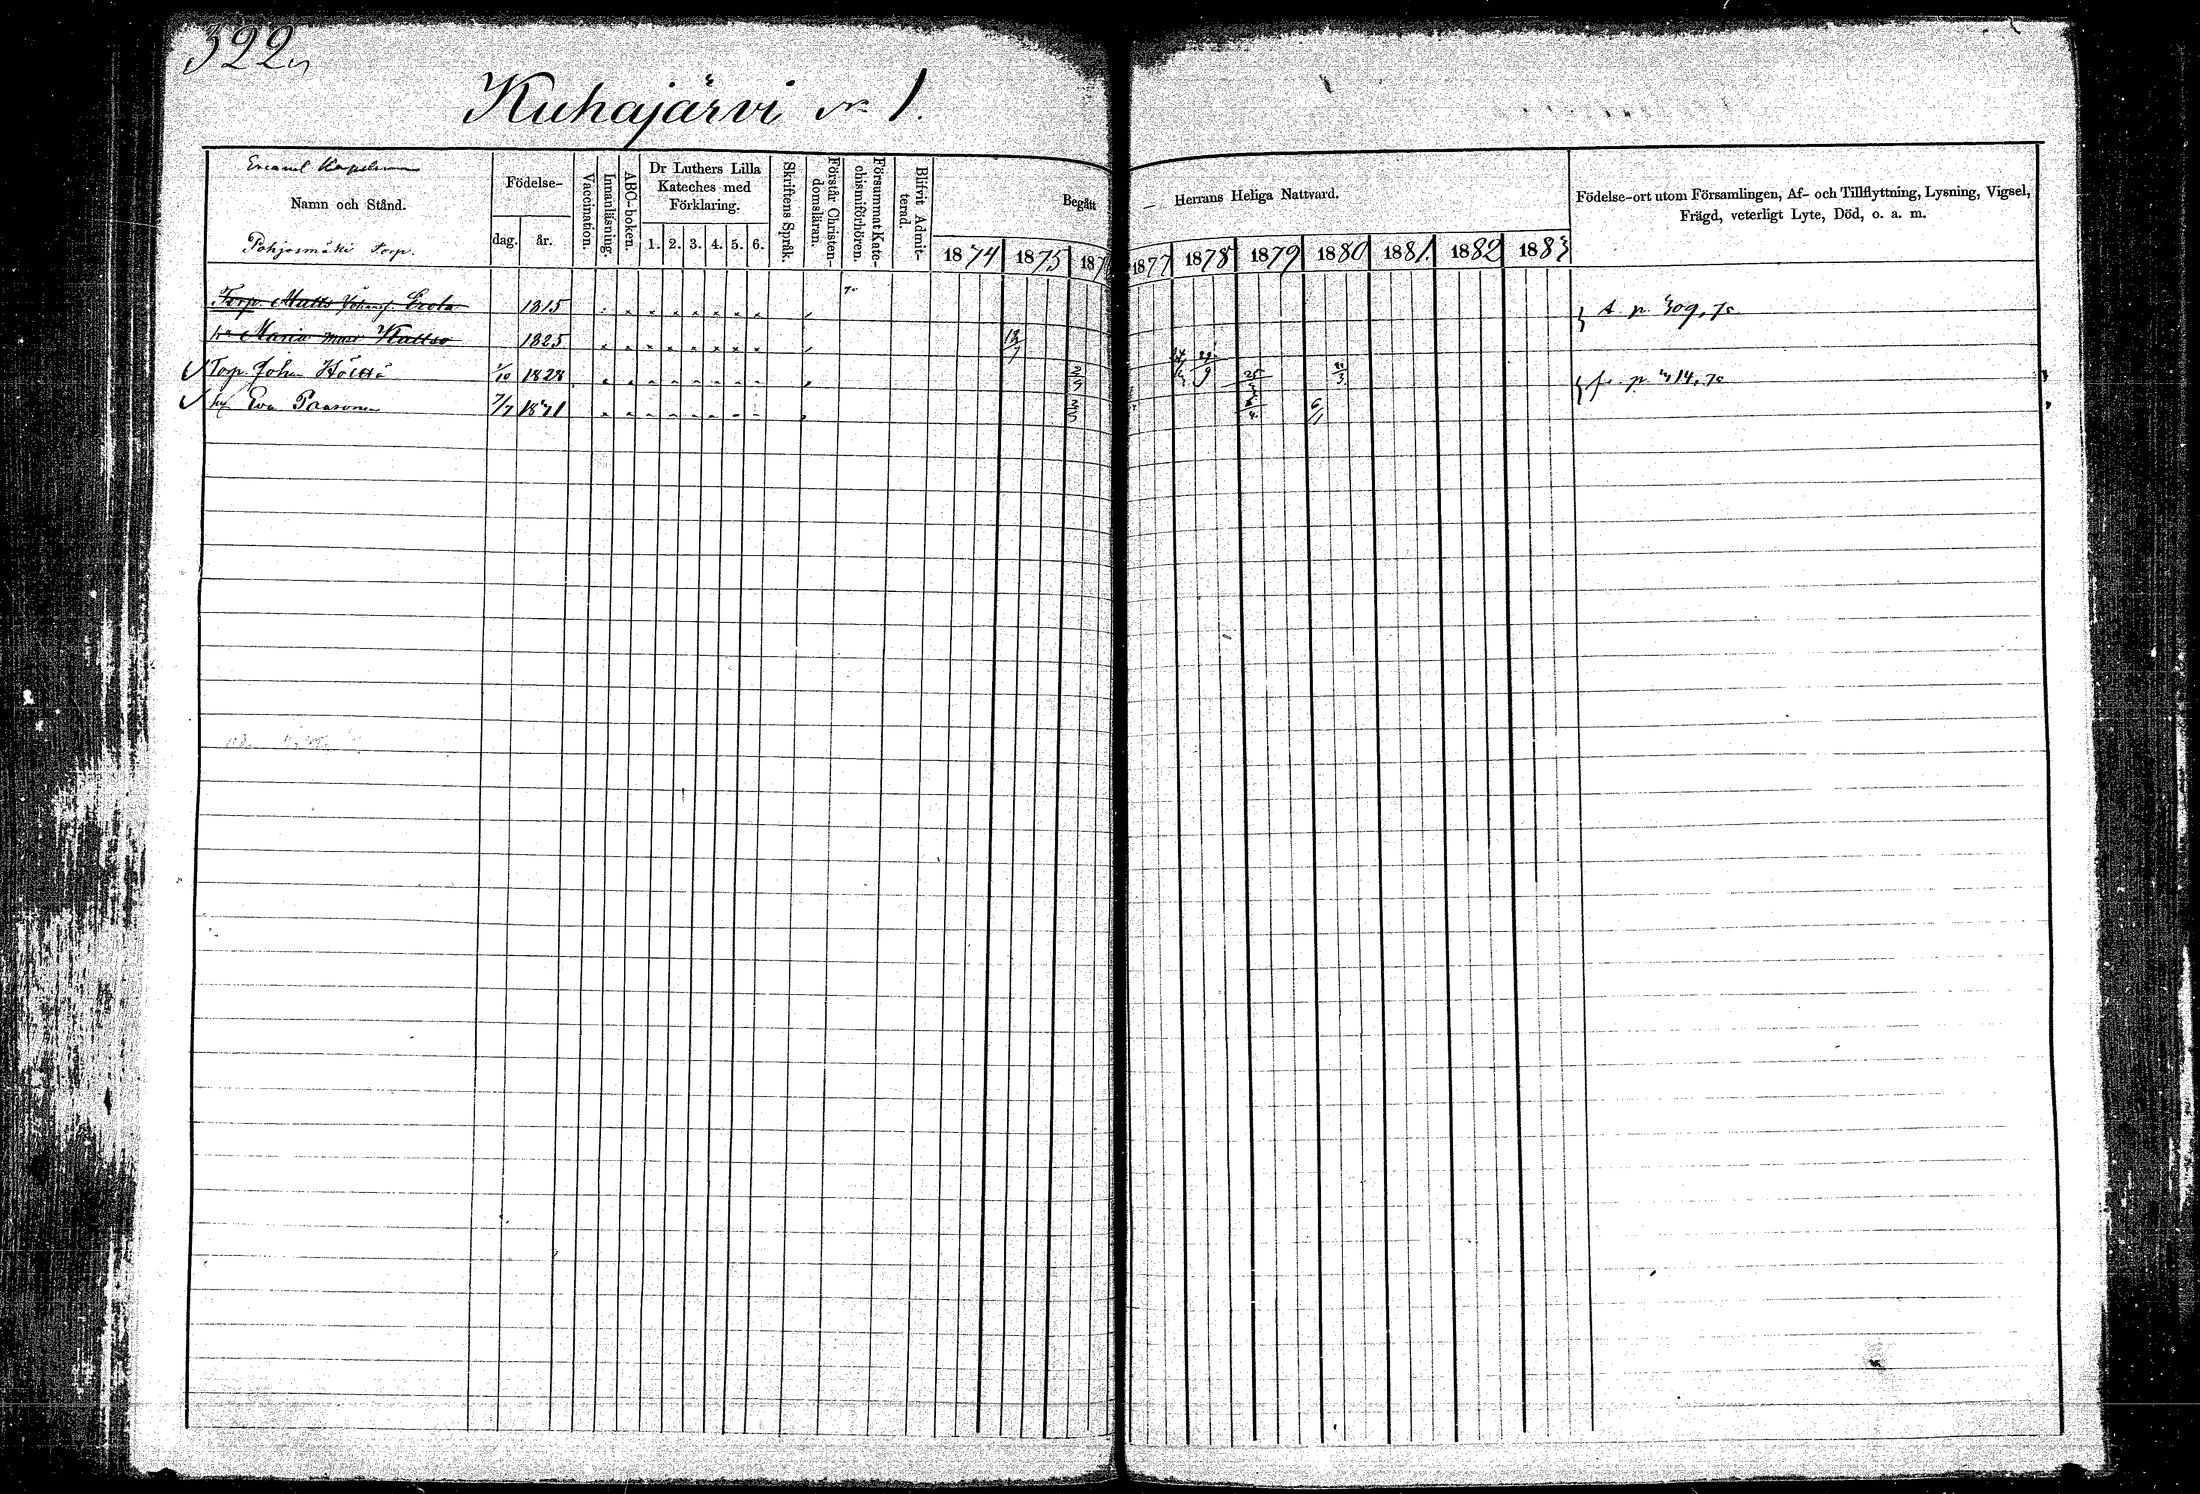 322
Kuhajärvi № 1.
Namn och Stånd.
Pohjosmäki torp.
Födelse-
dag. år.
Vaccination.
Innanläsning.
ABC-boken.
Dr Luthers Lilla
Kateches med
Förklaring.
1. 2. 3. 4. 5. 6.
Skriftens Språk.
Förstår Christen-
domsläran.
Försummat Kate-
chismiförhören.
Blifvit Admit-
terad.
Begått — Herrans Heliga Nattvard.
1874 1875 187 1877 1878 1879 1880 1881. 1882 1883
Födelse-ort utom Församlingen, Af- och Tillflyttning, Lysning, Vigsel,
Frägd, veterligt Lyte, Död, o. a. m.
Torp. Matts 1815 p. 309, 75
Maria 1825
Torp. Johan Hölttä 1/10 1828 p. 314, 75
Eva Paasonen 7/7